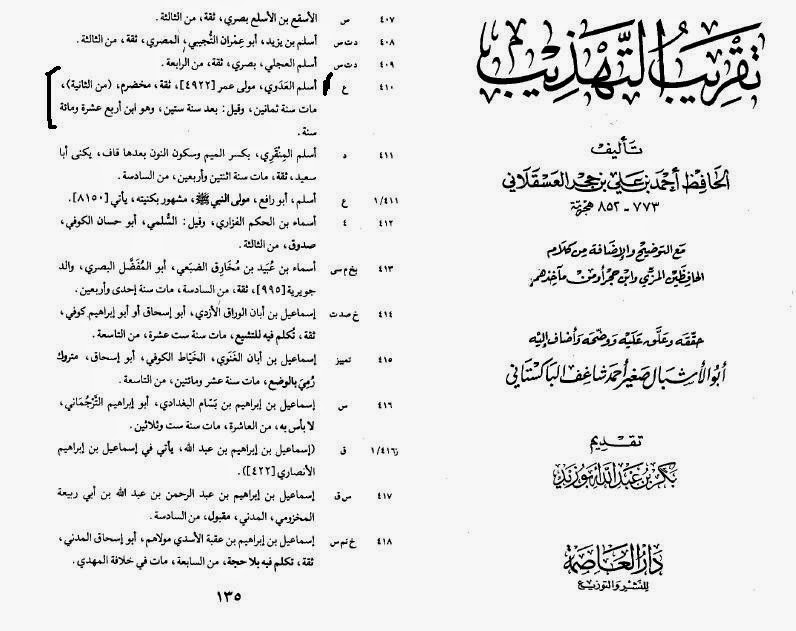 تقريب التهذيب
تأليف
الحافظ أحمد بن علي بن حجر العسقلاني
٧٧٣ - ٨٥٢ هجرية
مع التوضيح والإضافة من كلام
الحافظين المزي وابن حجر أو من مآخذهم
حققه وعلق عليه ووضحه وأضاف إليه
أبو الأشبال صغير أحمد شاغف الباكستاني
تقديم
بكر بن عبد الله أبو زيد
دار العاصمة
للنشر والتوزيع
٤٠٧ س الأسقع بن الأسلع بصري، ثقة، من الثالثة.
٤٠٨ د ت س أسلم بن يزيد، أبو عِمْران التُّجيبي، المصري، ثقة، من الثالثة.
٤٠٩ د ت س أسلم العجلي، بصري، ثقة، من الرابعة.
٤١٠ ع أسلم العَدَوي، مولى عمر [٤٩٢٢]، ثقة، مخضرم، (من الثانية)،
مات سنة ثمانين، وقيل: بعد سنة ستين، وهو ابن أربع عشرة ومائة
سنة.
٤١١ د أسلم المِنْقَري، بكسر الميم وسكون النون بعدها قاف، يكنى أبا
سعيد، ثقة، مات سنة اثنتين وأربعين، من السادسة.
١/٤١١ ع أسلم، أبو رافع، مولى النبي ﷺ، مشهور بكنيته، يأتي [٨١٥٠].
٤١٢ ٤ أسماء بن الحكم الفزاري، وقيل: السُّلمي، أبو حسان الكوفي،
صدوق، من الثالثة.
٤١٣ بخ م س أسماء بن عُبَيد بن مُخَارِق الضبَعي، أبو المُفَضَّل البصري، والد
جويرية [٩٩٥]، ثقة، من السادسة، مات سنة إحدى وأربعين.
٤١٤ خ صد ت إسماعيل بن أبان الوراق الأزدي، أبو إسحاق أو أبو إبراهيم كوفي،
ثقة، تُكلم فيه للتشيع، مات سنة ست عشرة، من التاسعة.
٤١٥ تمييز إسماعيل بن أبان الغَنَوي، الخَيَّاط الكوفي، أبو إسحاق، متروك
رُمِيَ بالوضع، مات سنة عشر ومائتين، من التاسعة.
٤١٦ س إسماعيل بن إبراهيم بن بَسَّام البغدادي، أبو إبراهيم التَّرْجُمَاني،
لا بأس به، من العاشرة، مات سنة ست وثلاثين.
ز١/٤١٦ ق (إسماعيل بن إبراهيم بن عبد الله، يأتي في إسماعيل بن إبراهيم
الأنصاري [٤٢٢]).
٤١٧ س ق إسماعيل بن إبراهيم بن عبد الرحمن بن عبد الله بن أبي ربيعة
المخزومي، المدني، مقبول، من السادسة.
٤١٨ خ تم س إسماعيل بن إبراهيم بن عقبة الأسدي مولاهم، أبو إسحاق المدني،
ثقة، تكلم فيه بلا حجة، من السابعة، مات في خلافة المهدي.
١٣٥